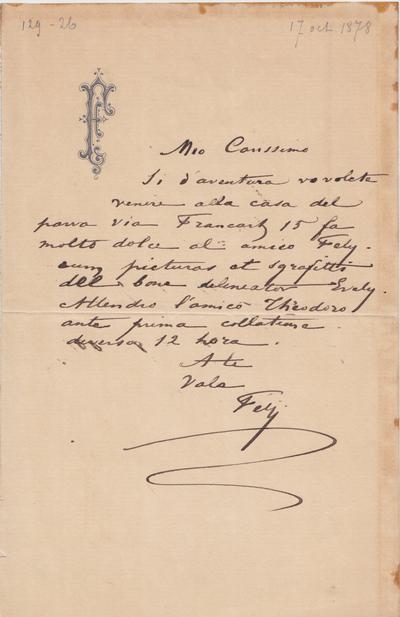 129-26
17 oct. 1878
F
Mio Carissimo
Si d'aventura vo volete
venire alla casa del
parva via Francart 15 fa
molto dolce al amico Fely.
cum picturas et sgrafitti
del bone delineator Evely.
Attendro l'amico Theodoro
ante prima collatione
diversa 12 hora.
A te
Vale
Fely